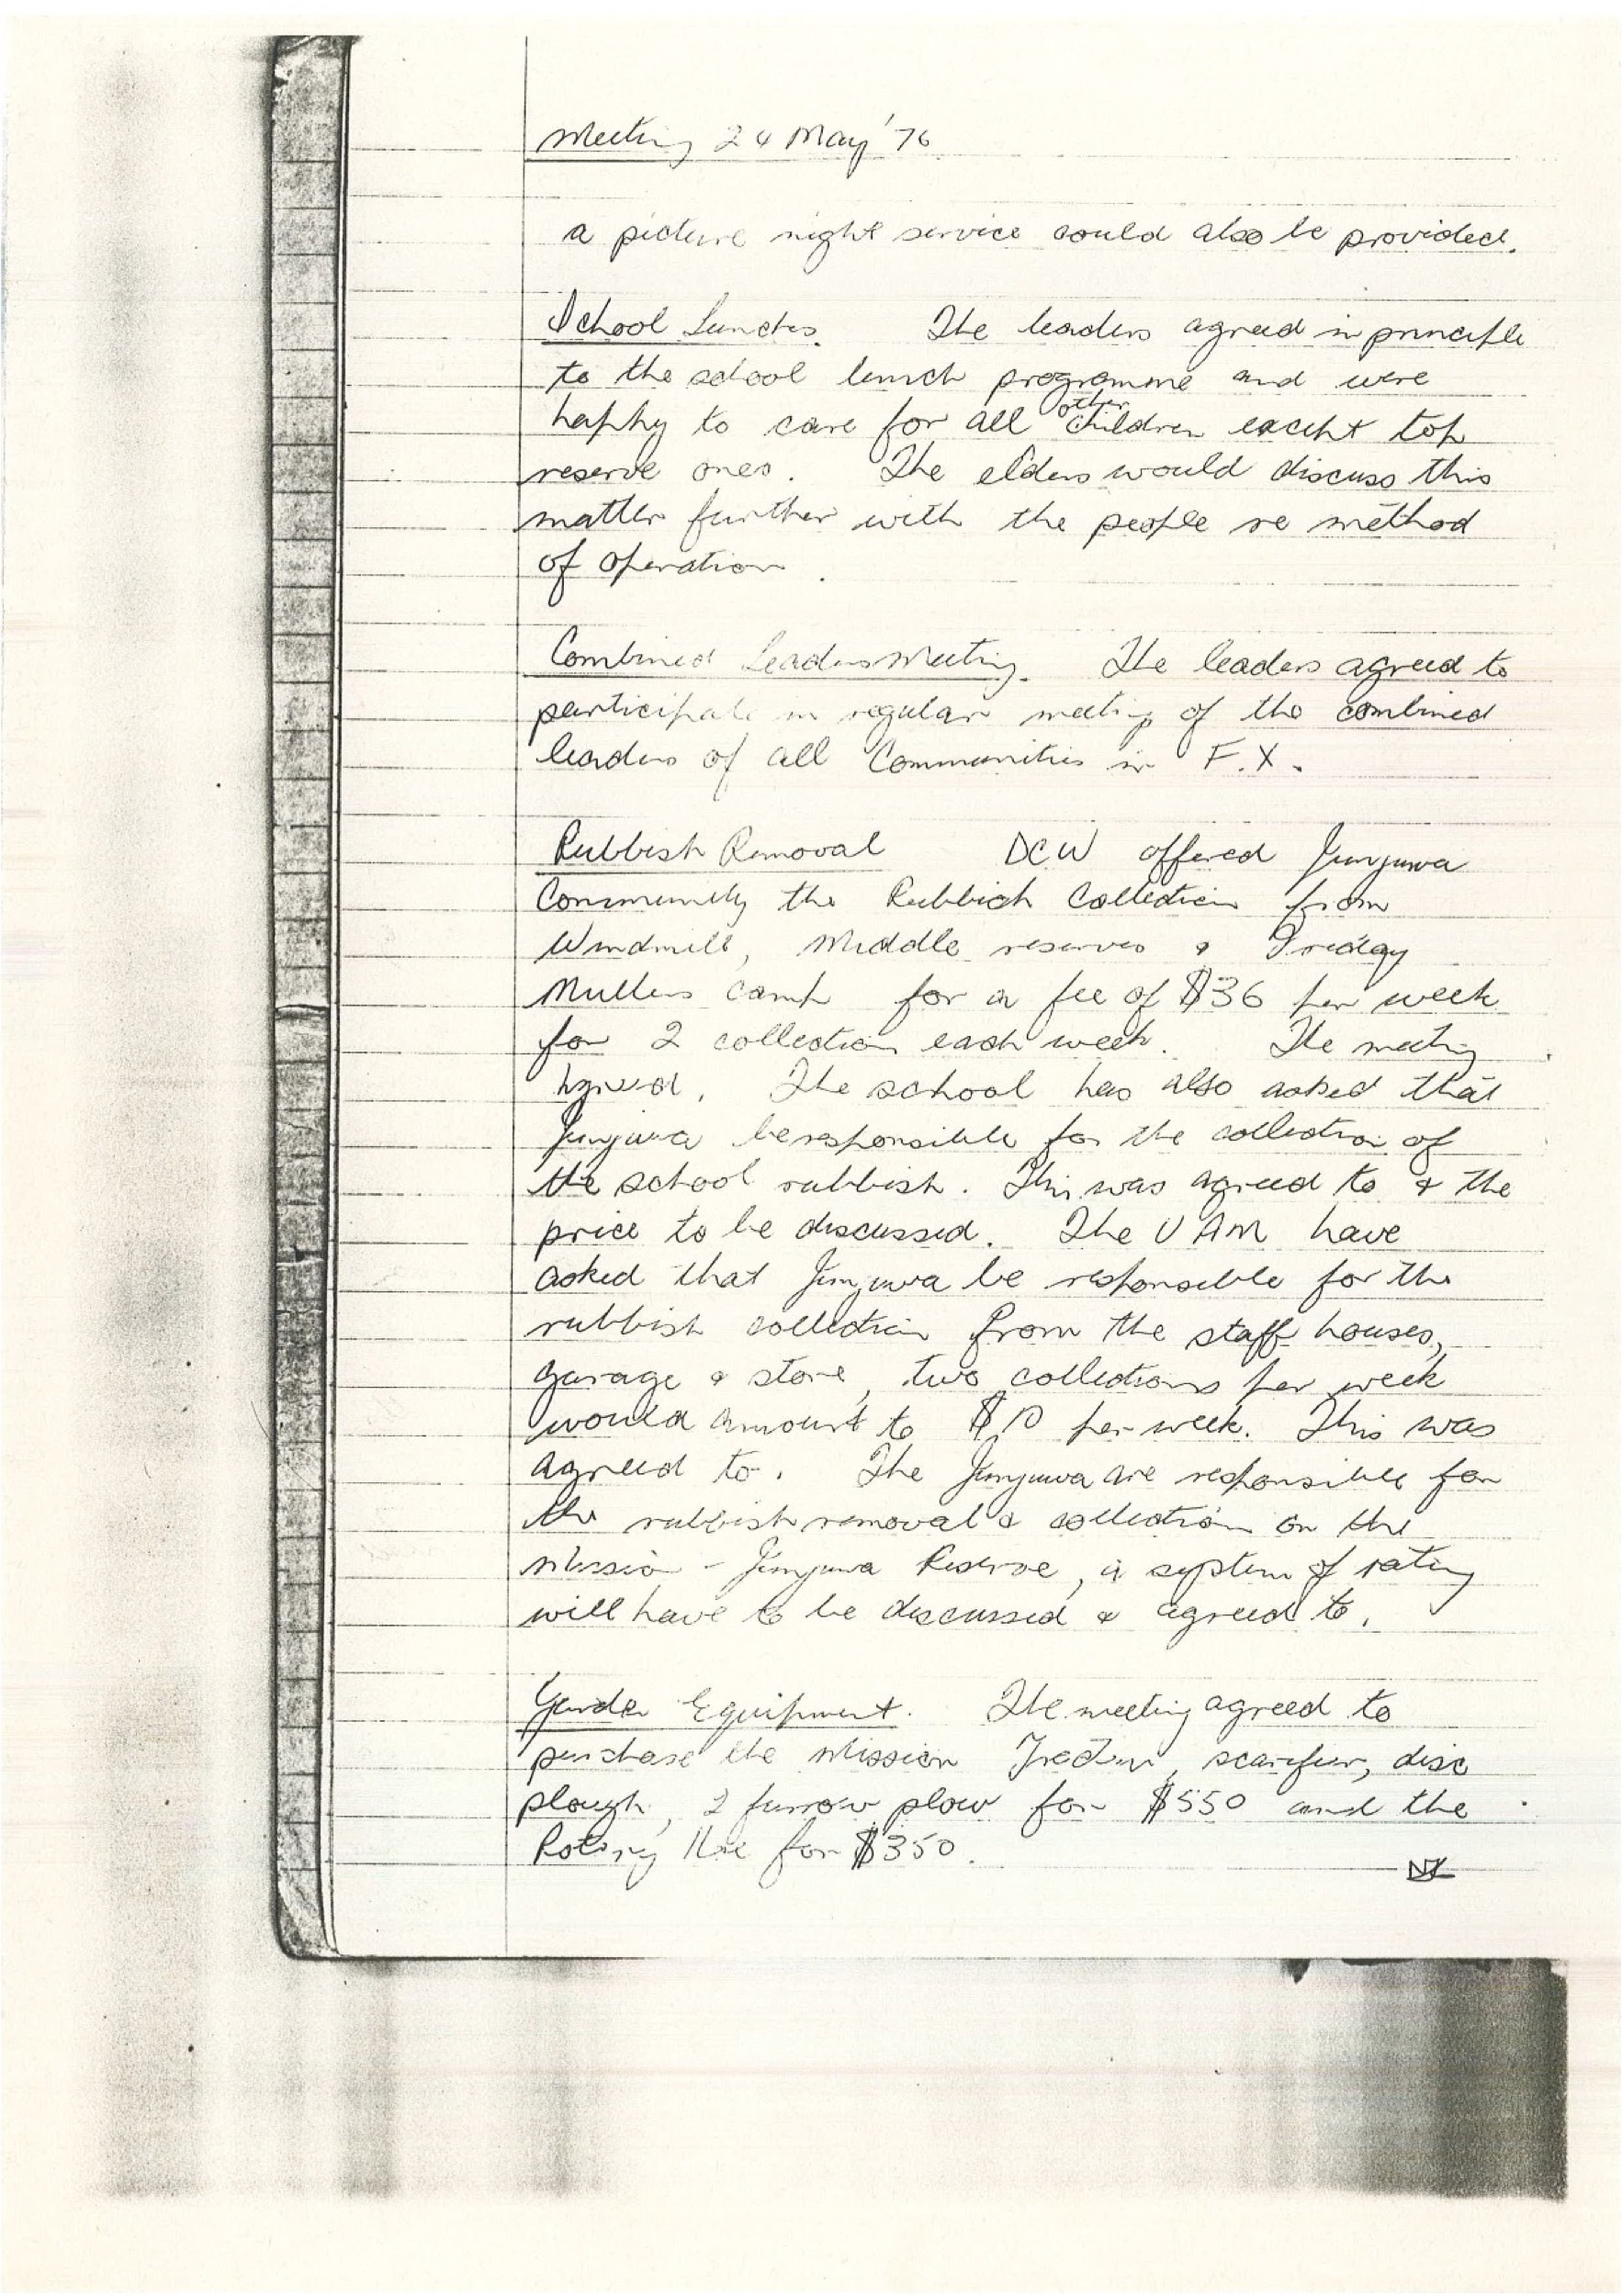 Meeting 24 May '76
a picture night service could also be provided.
School Lunches. The leaders agreed in principle
to the school lunch programme and were
happy to care for all other children except top
reserve ones. The elders would discuss this
matter further with the people re method
of operation.
Combined Leaders Meeting. The leaders agreed to
participate in regular meeting of the combined
leaders of all Communities in F.X.
Rubbish Removal DCW offered Junjuwa
Community the Rubbish Collection from
Windmill, Middle reserves &
Mullers camp for a fee of $36 per week
for 2 collection each week. The meeting
agreed. The school has also asked that
Junjuwa be responsible for the collection of
the school rubbish. This was agreed to & the
price to be discussed. The UAM have
asked that Junjuwa be responsible for the
rubbish collection from the staff houses,
garage & store, two collections per week
would amount to $10 per week. This was
agreed to. The Junjuwa are responsible for
the rubbish removal & collection on the
Mission - Junjuwa Reserve, a system of rating
will have to be discussed & agreed to.
Garden Equipment. The meeting agreed to
purchase the Mission Tractor, scarifier, disc
plough, 2 furrow plow for $550 and the
Rotary Hoe for $350.